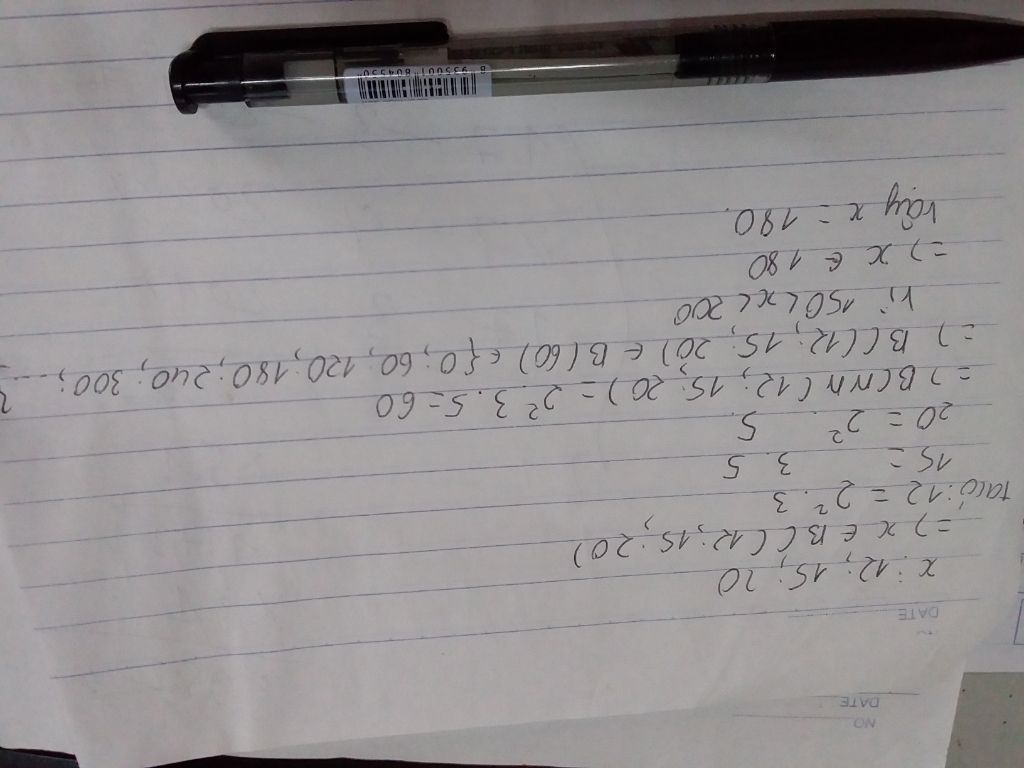 NO.
DATE
DATE
x ⋮ 12; 15; 20
=) x ∈ BC(12; 15; 20)
ta có: 12 = 2². 3
15 = 3. 5
20 = 2². 5
=) BCNN(12; 15; 20) = 2². 3. 5 = 60
=) BC(12; 15; 20) ∈ B(60) ∈ {0; 60; 120; 180; 240; 300; ... }
Vì 150 < x < 200
=) x ∈ 180
Vậy x = 180.
8 935001 804550